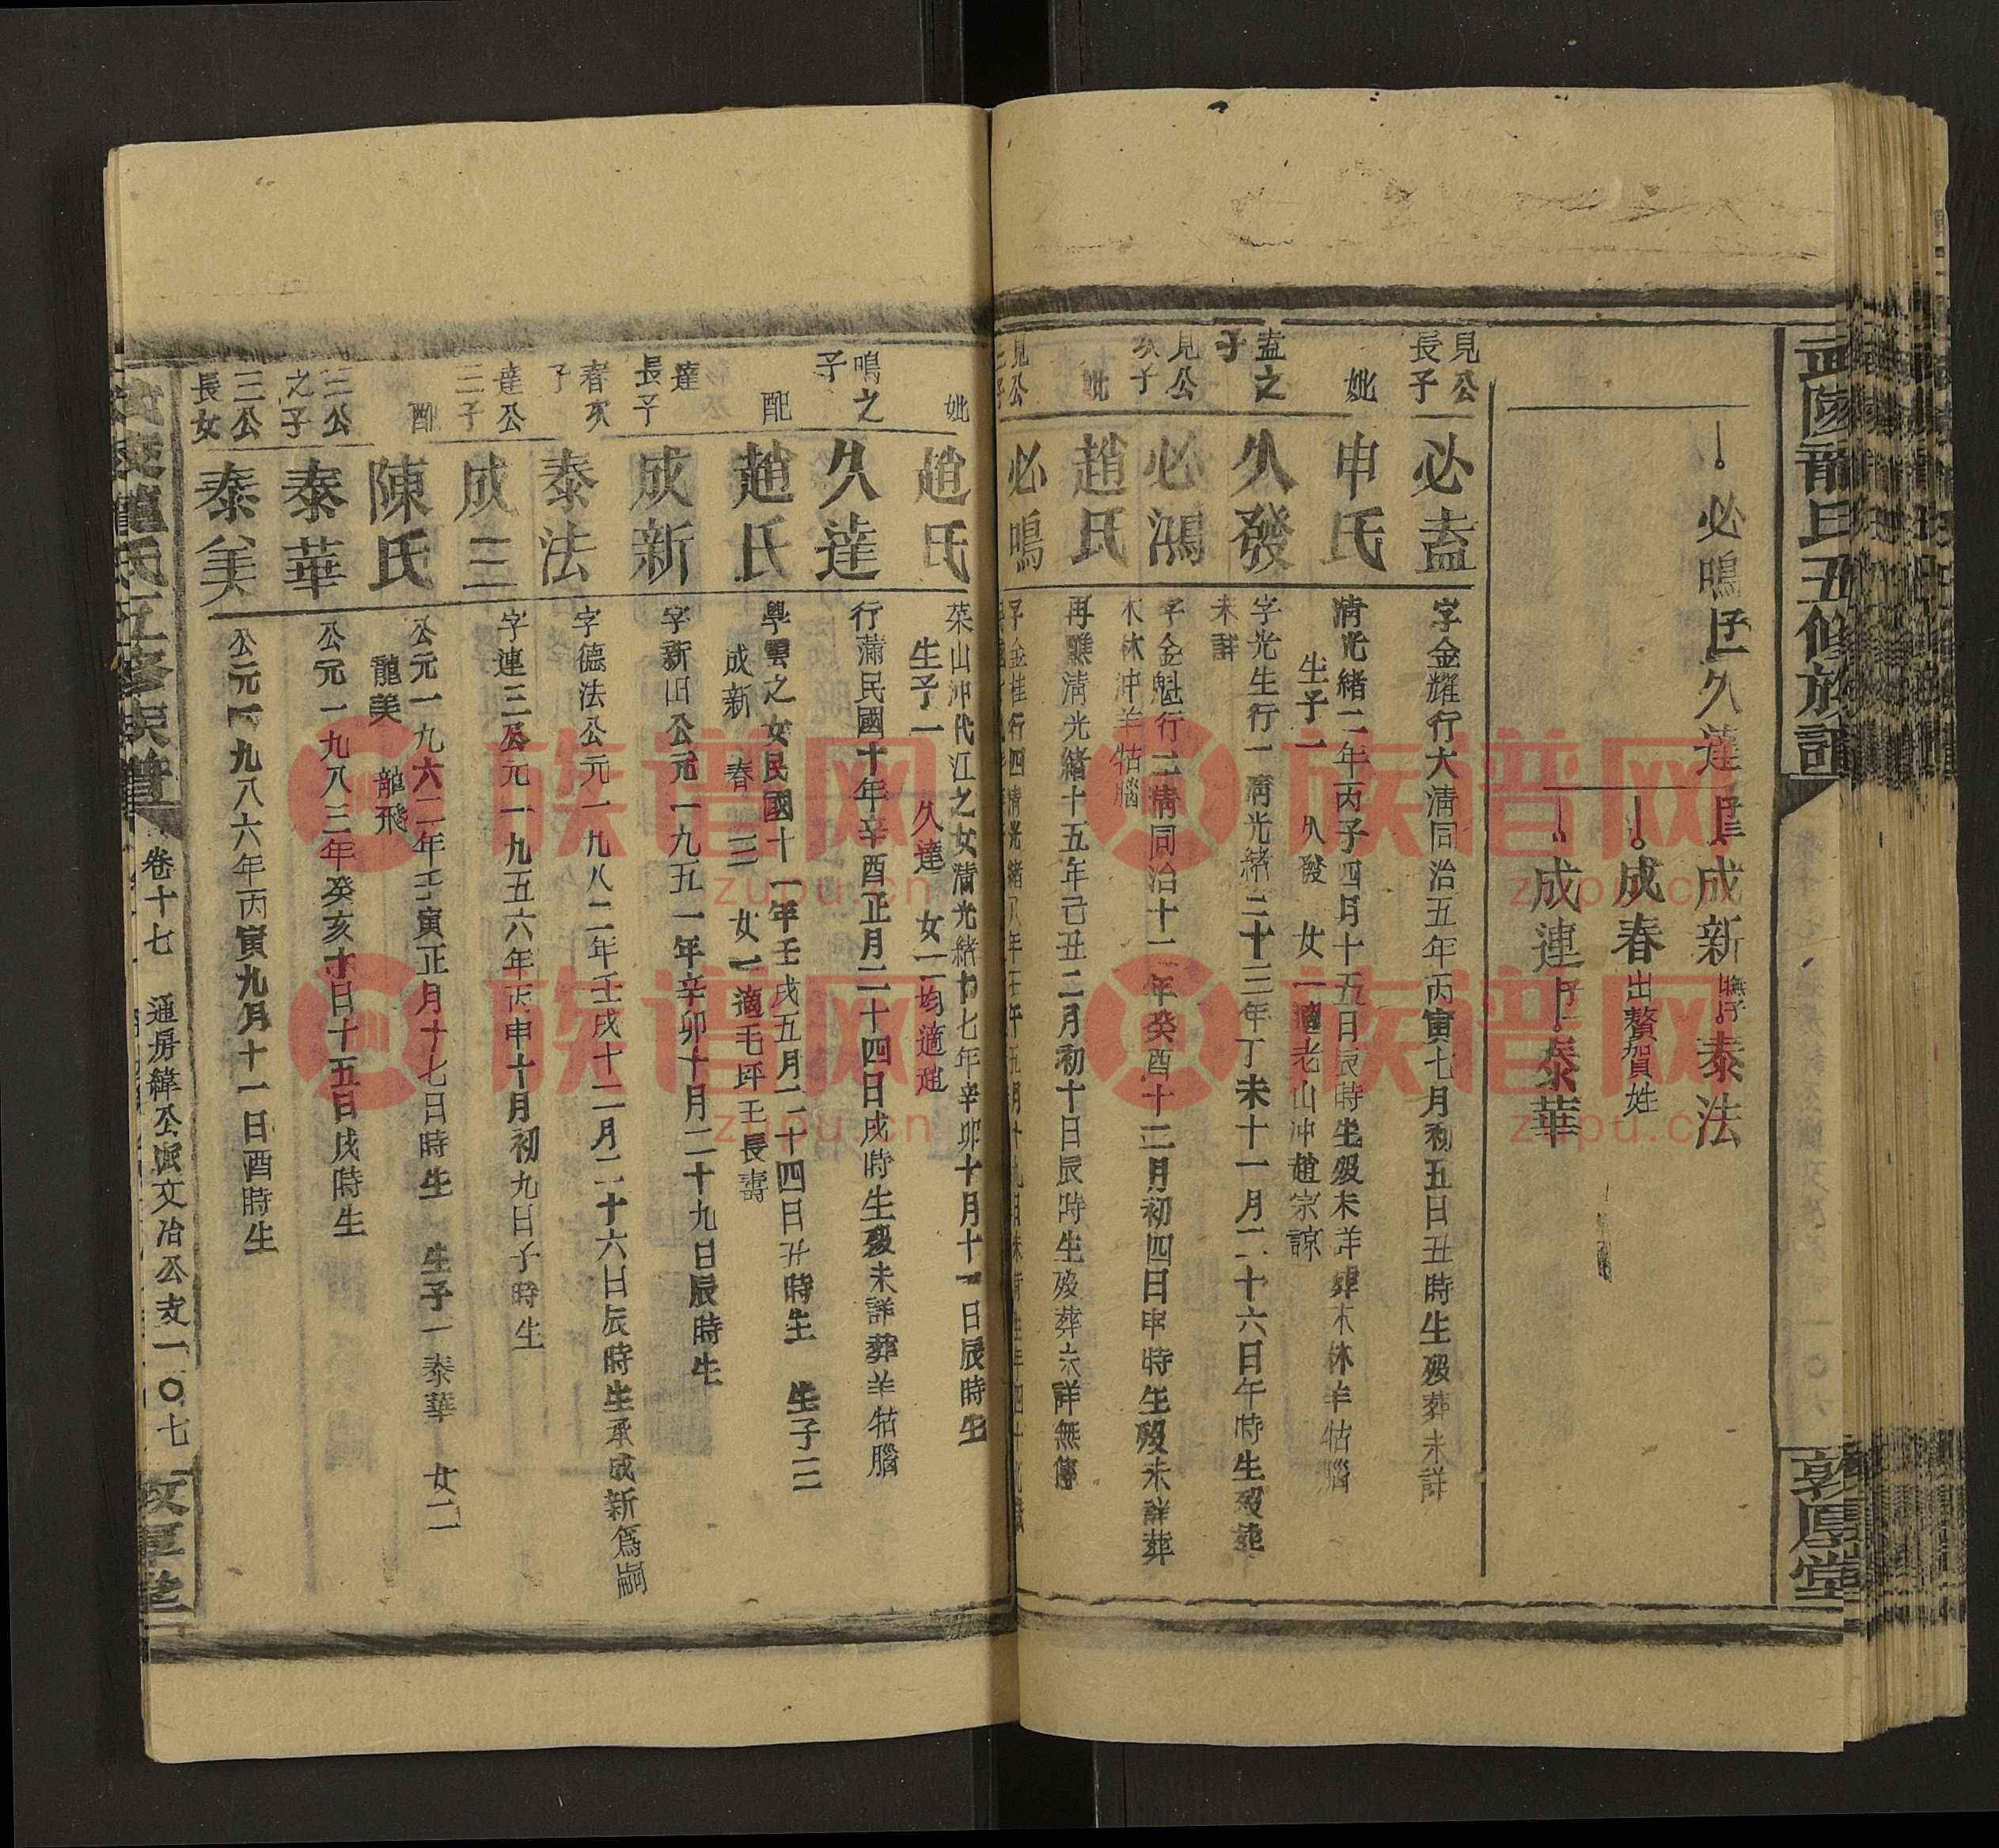 武陵龍氏五修族譜
敦厚堂
必鳴 子一 久達 子三 成新 撫子 泰法
成春 出贅賀姓
成連 子一 泰華
見公長子
必盍
字金耀行大清同治五年丙寅七月初五日丑時生歿葬未詳
妣
申氏
清光緒二年丙子四月十五日辰時生歿未詳葬木林羊牯腦
生子一 久發 女一適老山沖趙宗諒
盍之子
久發
字光生行一清光緒三十三年丁未十一月二十六日午時生歿葬
未詳
見公次子
必鴻
字金魁行二清同治十二年癸酉十二月初四日申時生歿未詳葬
木林沖羊牯腦
妣
趙氏
再醮清光緒十五年己丑二月初十日辰時生歿葬未詳無傳
見公三子
必鳴
字金桂行四清光緒八年壬午五月十九日未時生
妣
趙氏
菜山沖代江之女清光緒十七年辛卯十月十一日辰時生
生子一 久達 女二均適趙
鳴之子
久達
行蒲民國十年辛酉正月二十四日戌時生歿未詳葬羊牯腦
配
趙氏
學雲之女民國十一年壬戌五月二十四日丑時生 生子三
成新 春 三 女一適毛坪王長壽
達長子
成新
字新旧公元一九五一年辛卯十月二十九日辰時生
春次子
泰法
字德法公元一九八二年壬戌十二月二十六日辰時生承成新爲嗣
達公三子
成三
字連三公元一九五六年丙申十月初九日子時生
配
陳氏
公元一九六二年壬寅正月十七日時生 生子一泰華 女二
龍美 龍飛
三公之子
泰華
公元一九八三年癸亥十日十五日戌時生
三公長女
泰美
公元一九八六年丙寅九月十一日酉時生
武陵龍氏五修族譜
卷十七 通房緯公寅文治公支一〇七
敦厚堂
族谱网
zupu.cn
族谱网
zupu.cn
族谱网
zupu.cn
族谱网
zupu.cn